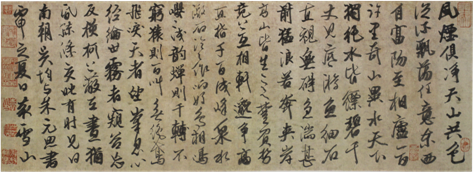 風煙俱淨天山共色
從流飄蕩任意東西
自富陽至桐廬一百
許里奇山異水天下
獨絕水皆縹碧千
丈見底游魚細石
直視無礙急湍甚
箭猛浪若奔夾岸
高山皆生寒樹負勢
競上互相軒邈爭高
直指千百成峰泉水
激石泠泠作響好鳥相鳴
嚶嚶成韻蟬則千轉不
窮猿則百叫無絕鳶
飛戾天者望峰息心
經綸世務者窺谷忘
反橫柯上蔽在晝猶
昏疏條交映有時見日
南朝吳均與朱元思書
之夏日雪山